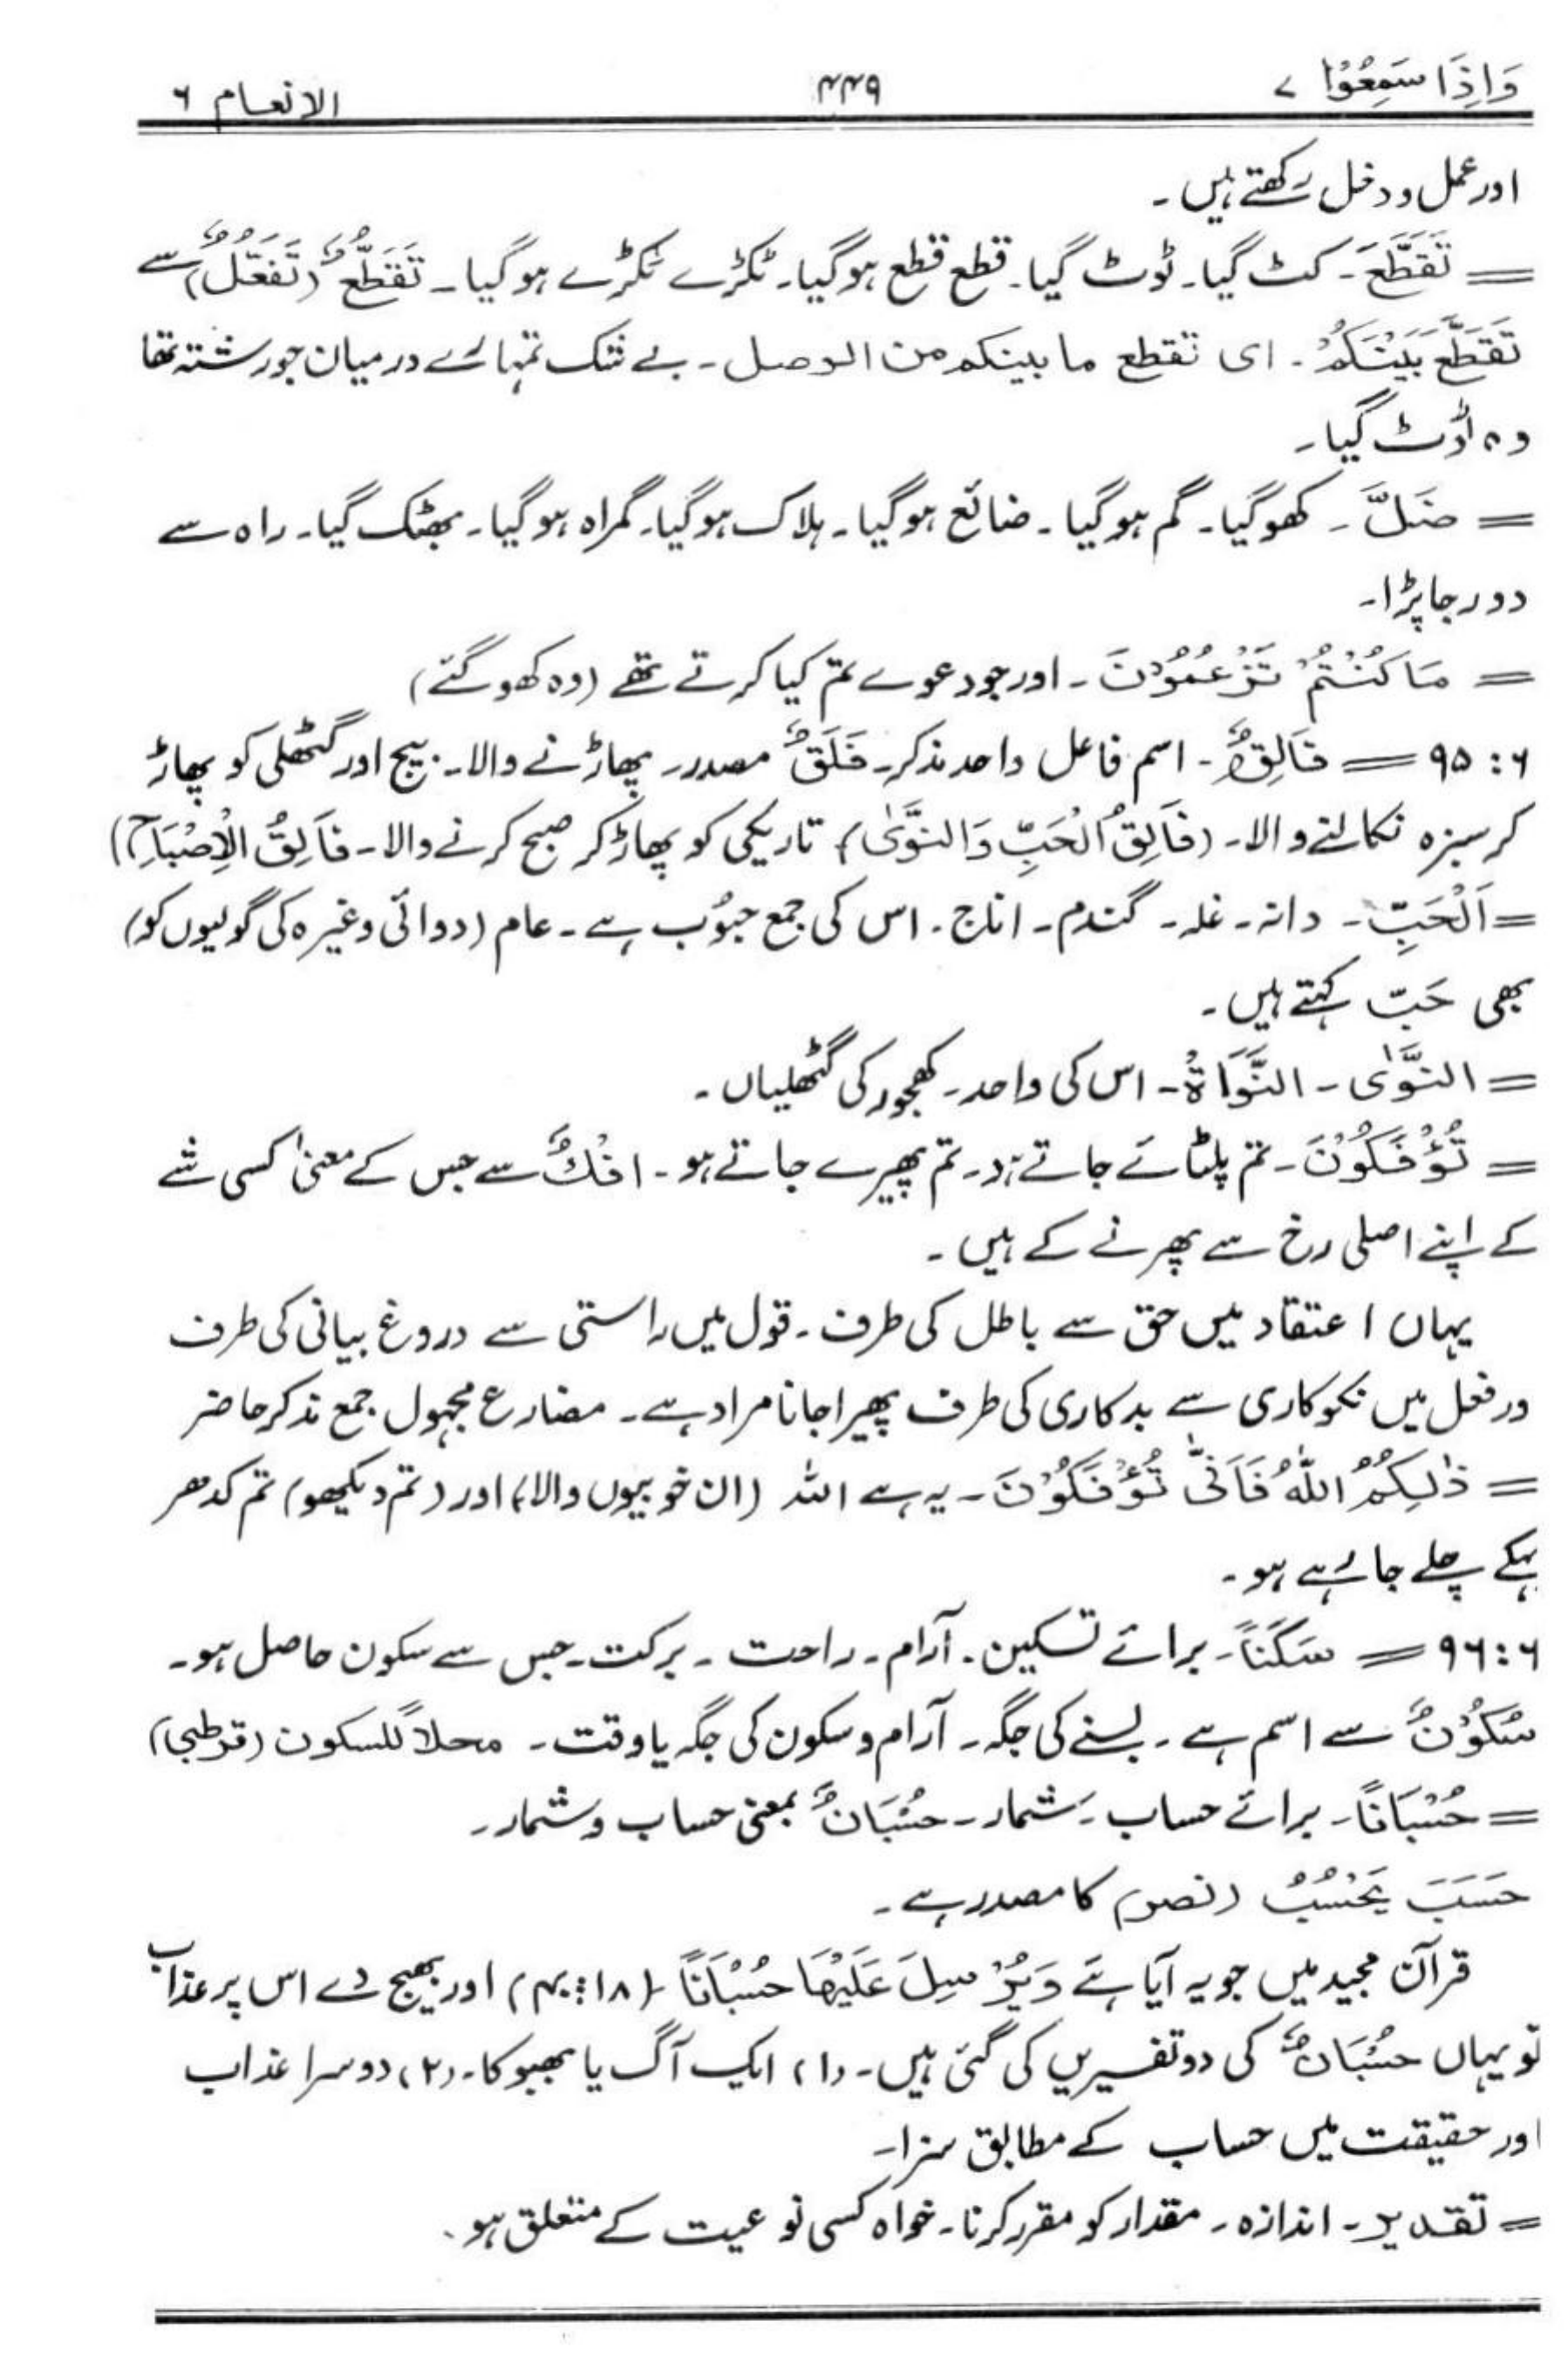 وَاِذَا سَمِعُوْا ۷ ۴۴۹ الانعام ۶
اور عمل و دخل رکھتے ہیں ۔
= تَقَطَّعَ ۔ کٹ گیا۔ ٹوٹ گیا۔ قطع قطع ہوگیا۔ ٹکڑے ٹکڑے ہوگیا۔ تَقَطُّعٌ (تَفَعُّلٌ) سے
تَقَطَّعَ بَيْنَكُمْ ۔ ای تقطع ما بينكم من الوصل ۔ بے شک تمہارے درمیان جو رشتہ تھا
وہ ٹوٹ گیا۔
= ضَلَّ ۔ کھوگیا۔ گم ہوگیا۔ ضائع ہوگیا۔ ہلاک ہوگیا۔ گمراہ ہوگیا۔ بھٹک گیا۔ راہ سے
دور جاپڑا۔
= مَا كُنْتُمْ تَزْعُمُوْنَ ۔ اور جو دعوے تم کیا کرتے تھے (وہ کھوگئے)
۶ : ۹۵ = فَالِقٌ ۔ اسم فاعل واحد مذکر۔ فَلَقٌ مصدر۔ پھاڑنے والا۔ بیج اور گٹھلی کو پھاڑ
کر سبزہ نکالنے والا۔ (فَالِقُ الْحَبِّ وَالنَّوٰى) تاریکی کو پھاڑ کر صبح کرنے والا۔ فَالِقُ الْاِصْبَاحِ)
= اَلْحَبِّ ۔ دانہ۔ غلہ۔ گندم۔ اناج۔ اس کی جمع حبُوب ہے۔ عام (دوائی وغیرہ کی گولیوں کو)
بھی حَبّ کہتے ہیں ۔
= النَّوٰى ۔ النَّوَاةُ ۔ اس کی واحد۔ کھجور کی گٹھلیاں ۔
= تُؤْفَكُوْنَ ۔ تم پلٹائے جاتے ہو۔ تم پھیرے جاتے ہو۔ افْكٌ سے جس کے معنیٰ کسی شے
کے اپنے اصلی رخ سے پھرنے کے ہیں ۔
یہاں اعتقاد میں حق سے باطل کی طرف ۔ قول میں راستی سے دروغ بیانی کی طرف
ور فعل میں نکوکاری سے بدکاری کی طرف پھیرا جانا مراد ہے۔ مضارع مجہول جمع مذکر حاضر
= ذٰلِكُمُ اللّٰهُ فَاَنّٰى تُؤْفَكُوْنَ ۔ یہ ہے اللہ (ان خوبیوں والا) اور (تم دیکھو) تم کدھر
بہکے چلے جارہے ہو ۔
۶ : ۹۶ = سَكَنًا ۔ برائے تسکین۔ آرام۔ راحت ۔ برکت۔ جس سے سکون حاصل ہو۔
سُكُوْنٌ سے اسم ہے ۔ بسنے کی جگہ۔ آرام و سکون کی جگہ یا وقت ۔ محلاً للسکون (قرطبی)
= حُسْبَانًا ۔ برائے حساب ۔ شمار۔ حُسْبَانٌ بمعنی حساب و شمار۔
حَسَبَ يَحْسُبُ (نصر) کا مصدر ہے ۔
قرآن مجید میں جو یہ آیا ہے وَيُرْسِلَ عَلَيْهَا حُسْبَانًا (۱۸ : ۴۰) اور بھیج دے اس پر عذاب
تو یہاں حُسْبَانٌ کی دو تفسیریں کی گئی ہیں ۔ (۱) ایک آگ یا بھبوکا۔ (۲) دوسرا عذاب
اور حقیقت میں حساب کے مطابق سزا۔
= تقدیر ۔ اندازہ ۔ مقدار کو مقرر کرنا۔ خواہ کسی نوعیت کے متعلق ہو۔